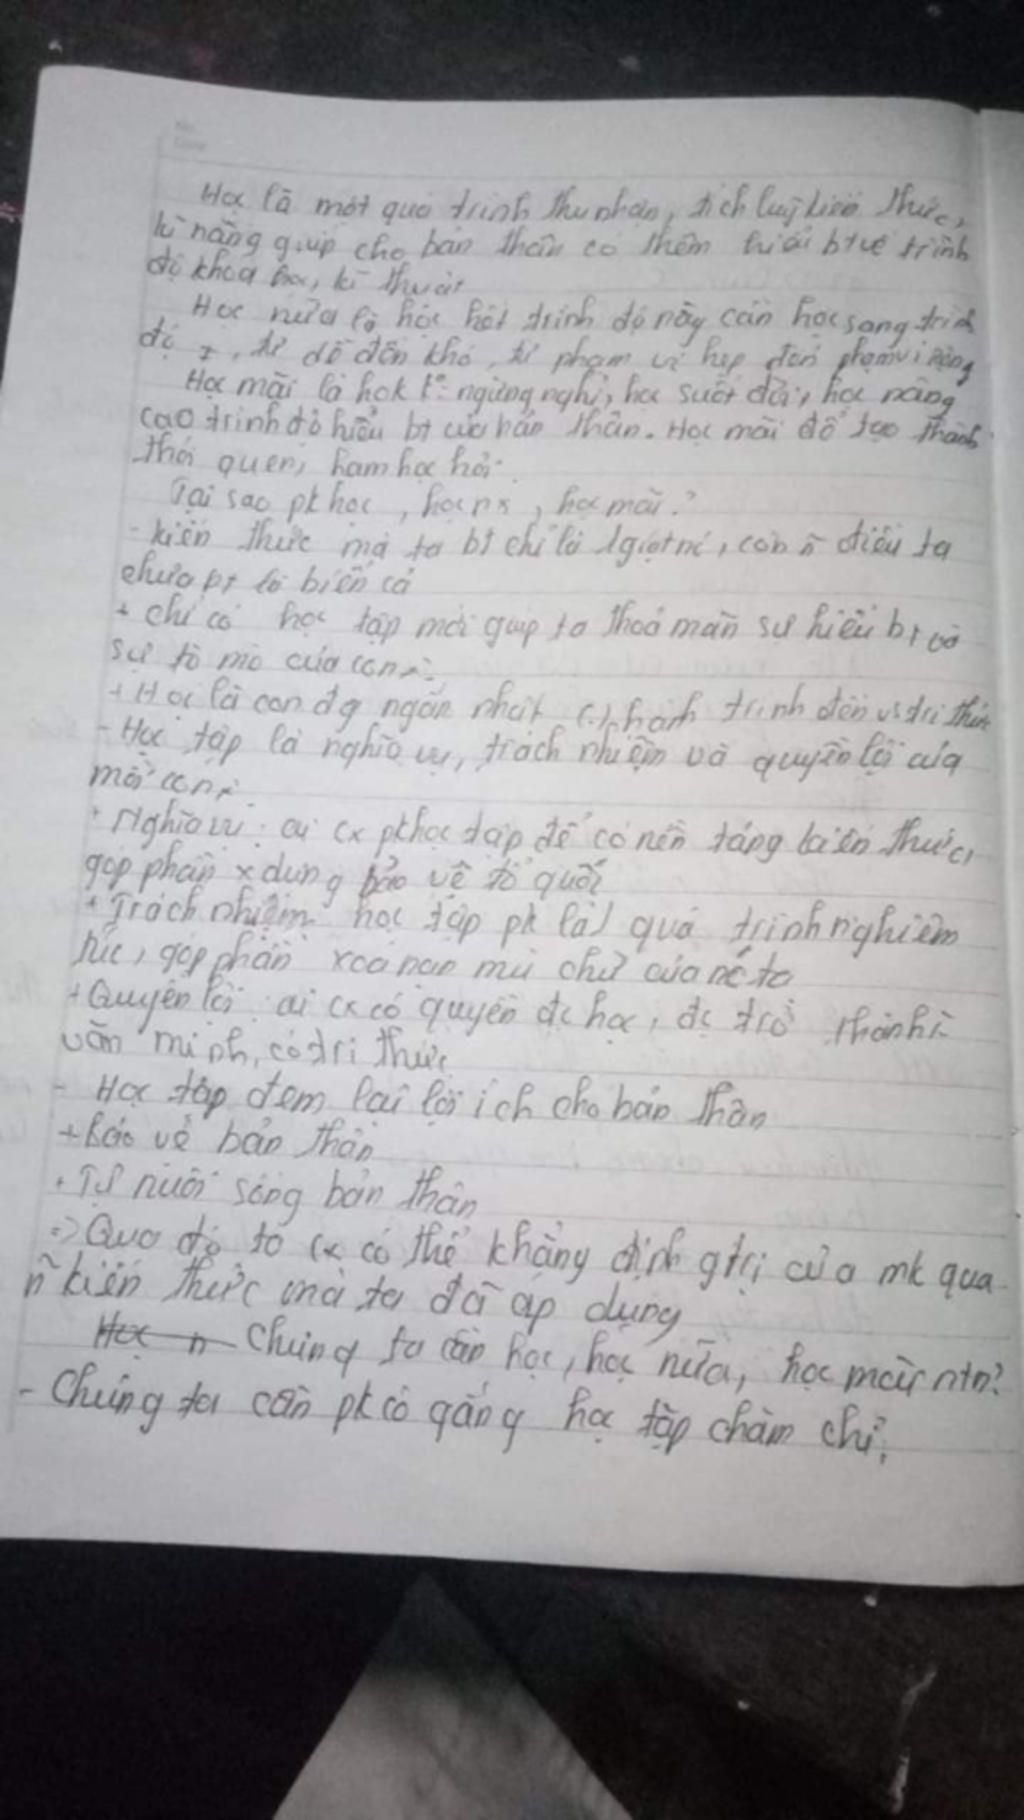 Học là một quá trình thu nhận, tích luỹ kiến thức,
kĩ năng giúp cho bản thân có thêm hiểu bt về trình
độ khoa học, kĩ thuật
Học nữa là học hết trình độ này cần học sang trình
độ ≠, từ dễ đến khó, từ phạm vi hẹp đến phạm vi rộng
Học mãi là hok ngừng nghỉ, học suốt đời, học nâng
cao trình độ hiểu bt của bản thân. Học mãi để tạo thành
thói quen, ham học hỏi.
Tại sao pk học, học nx, học mãi?
- kiến thức mà ta bt chỉ là 1 giọt nc, còn n~ điều ta
chưa bt là biển cả
+ chỉ có học tập mới giúp ta thoả mãn sự hiểu bt và
sự tò mò của con
+ Học là con đg ngắn nhất (.) hành trình đến vs tri thức
- Học tập là nghĩa vụ, trách nhiệm và quyền lợi của
mỗi con
+ Nghĩa vụ: ai cx pk học tập để có nền tảng kiến thức,
góp phần x dựng bảo vệ tổ quốc
+ Trách nhiệm học tập pk là 1 quá trình nghiêm
túc, góp phần xoá nạn mù chữ của nc ta
+ Quyền lợi: ai cx có quyền đc học, đc trở thành
văn minh, có tri thức
- Học tập đem lại lợi ích cho bản thân
+ Bảo vệ bản thân
+ Tự nuôi sống bản thân
=> Qua đó ta cx có thể khẳng định gtrị của mk qua
n~ kiến thức mà ta đã áp dụng
Học n Chúng ta cần học, học nữa, học mãi ntn?
- Chúng ta cần pk cố gắng học tập chăm chỉ,